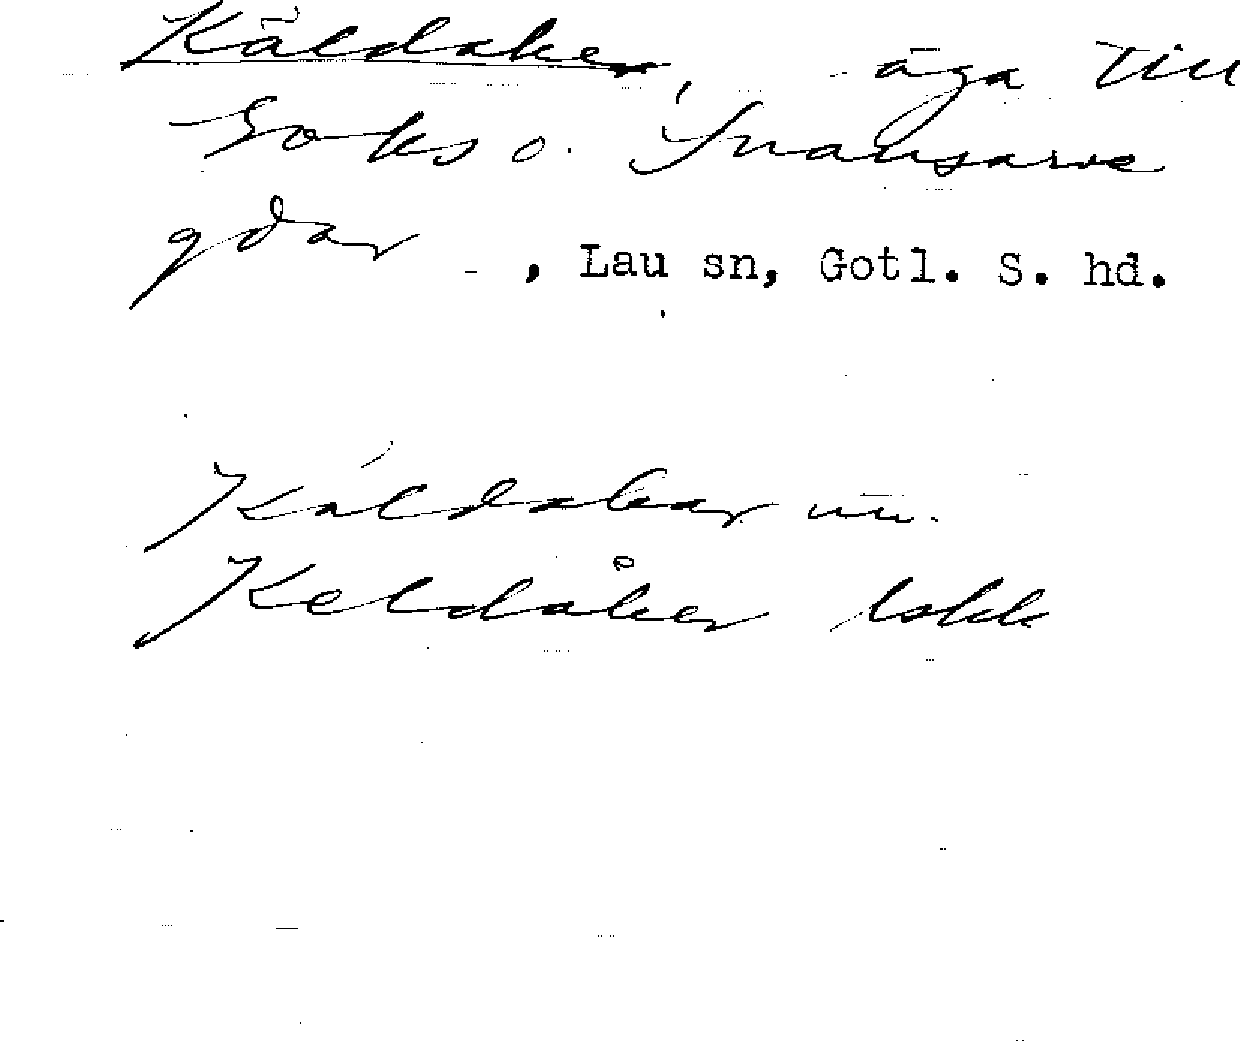 Käldaker, äga till
Soks o. Snausarve
gdar, Lau sn, Gotl. S. hd.
Káldakar
Keldåker lskk